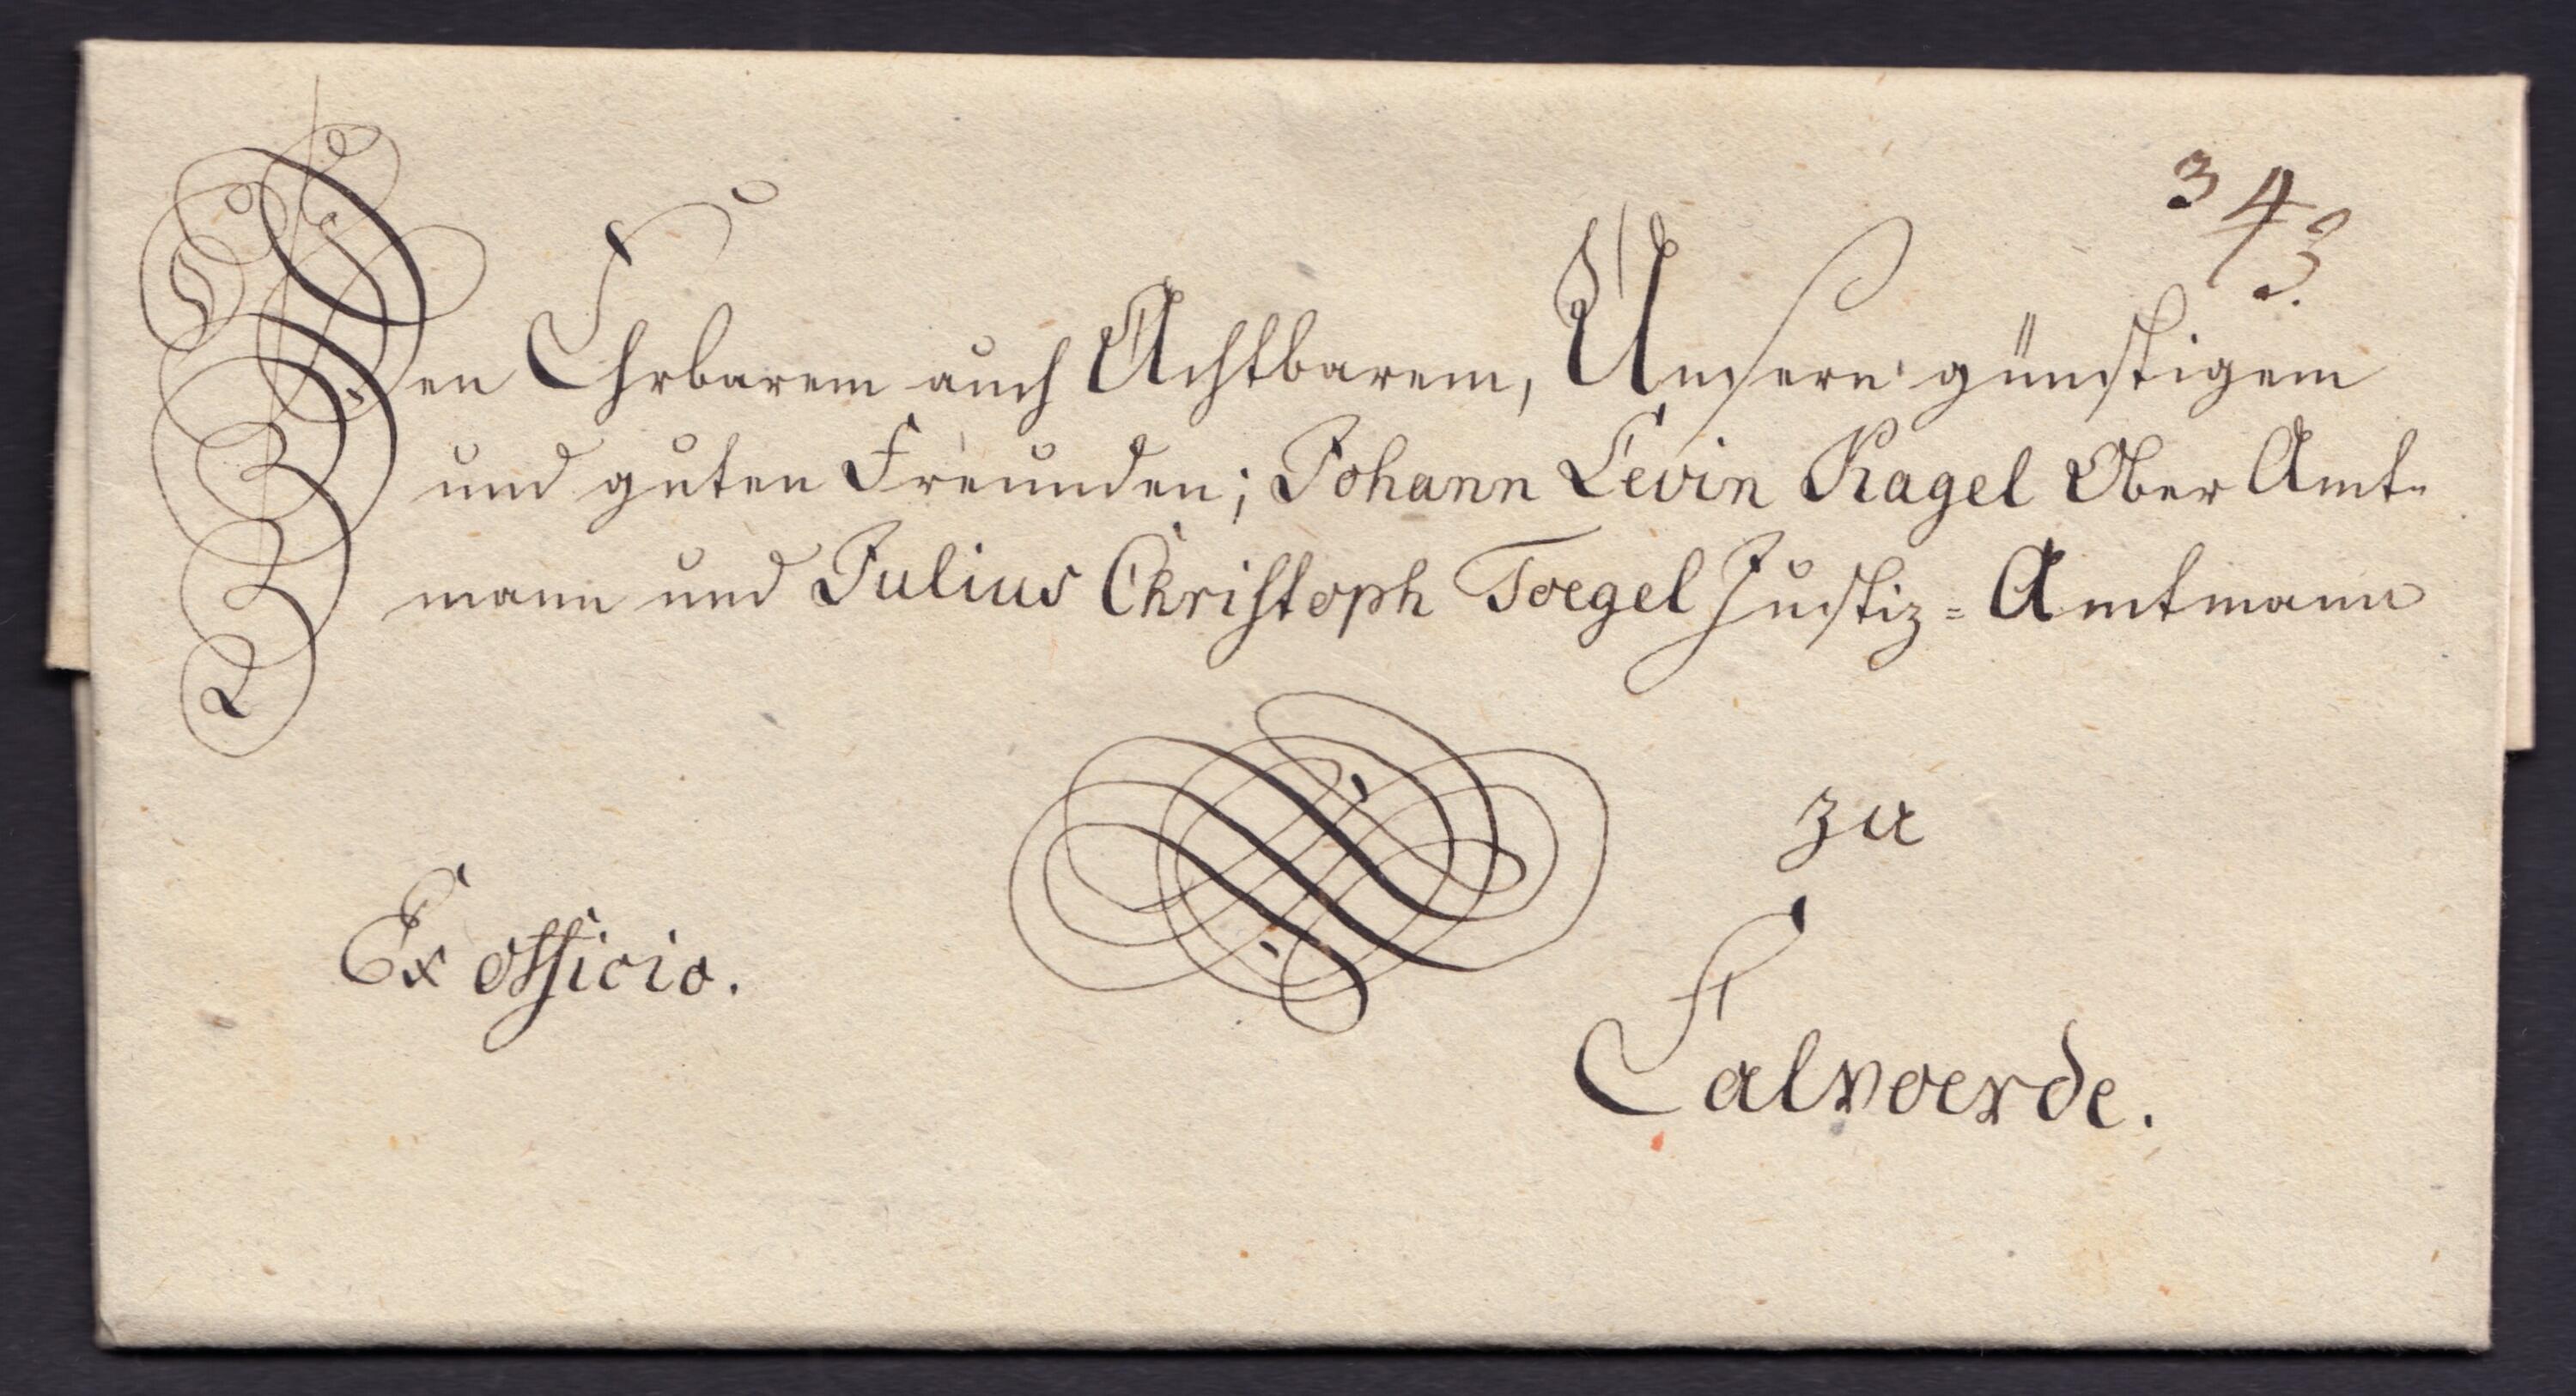 343.
Den Ehrbarem auch Achtbarem, Unsern günstigem
und guten Freunden; Johann Levin Ragel Ober Amt=
mann und Julius Christoph Toegel Justiz=Amtmann
zu
Ex officio.
Calvoerde.